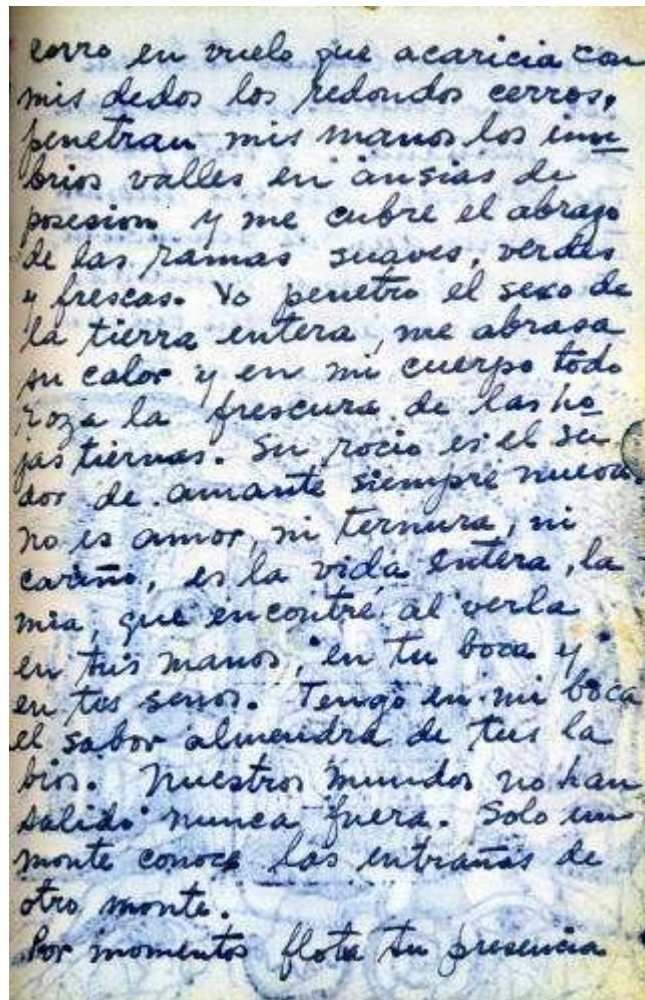 corro en vuelo que acaricia con
mis dedos los redondos cerros,
penetran mis manos los um
brios valles en ansias de
posesion y me cubre el abrazo
de las ramas suaves, verdes
y frescas. Yo penetro el sexo de
la tierra entera, me abrasa
su calor y en mi cuerpo todo
roza la frescura de las ho
jas tiernas. Su rocio es el su
dor de amante siempre nuevo.
no es amor, ni ternura, ni
cariño, es la vida entera, la
mia, que encontré al verla
en tus manos, en tu boca y
en tus senos. Tengo en mi boca
el sabor almendra de tus la
bios. Nuestros mundos no han
salido nunca fuera. Solo un
monte conoce las entrañas de
otro monte.
Por momentos flota tu presencia